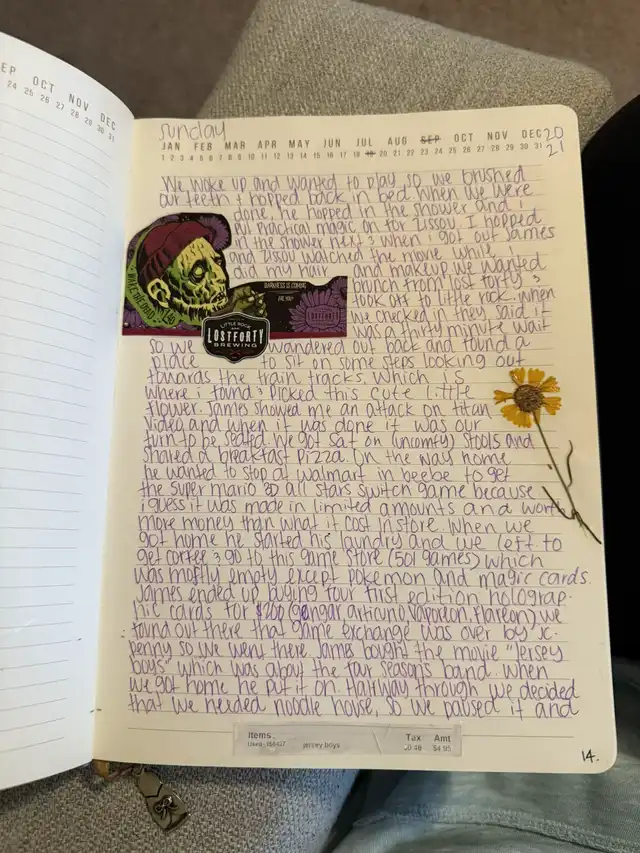 EP OCT NOV DEC
24 25 26 27 28 29 30 31
sunday
JAN FEB MAR APR MAY JUN JUL AUG SEP OCT NOV DEC 20
1 2 3 4 5 6 7 8 9 10 11 12 13 14 15 16 17 18 19 20 21 22 23 24 25 26 27 28 29 30 31 21
We woke up and wanted to play so we brushed
our teeth & hopped back in bed. When we were
done, he hopped in the shower and i
put Practical magic on for Zissou. I hopped
in the shower next & when i got out James
and Zissou watched the movie while i
did my hair and makeup. We wanted
brunch from lost forty &
took off to little rock. When
we checked in they said it
was a thirty minute wait
DARKNESS IS COMING
ARE YOU
LOST FORTY
LITTLE ROCK
LOSTFORTY
BREWING
so we wandered out back and found a
place to sit on some steps looking out
towards the train tracks. Which is
where i found & picked this cute little
flower. James showed me an attack on titan
video and when it was done it was our
turn to be seated. We got sat on (uncomfy) stools and
shared a breakfast pizza. On the way home
he wanted to stop at walmart in beebe to get
the super mario 3D all stars switch game because
i guess it was made in limited amounts and worth
more money than what it cost in store. When we
got home he started his laundry and we left to
get coffee & go to this game store (501 games) which
was mostly empty except pokemon and magic cards.
James ended up buying four first edition holograp-
hic cards for $200 (Gengar, articuno, Vaporeon, Flareon) we
found out there that game exchange was over by jc-
penny so we went there. James bought the movie "Jersey
boys" which was about the four seasons band. When
we got home he put it on. Halfway through we decided
that we needed noodle house, so we paused it and
Items Tax Amt
Used - jersey boys 0.48 $4.95
14.